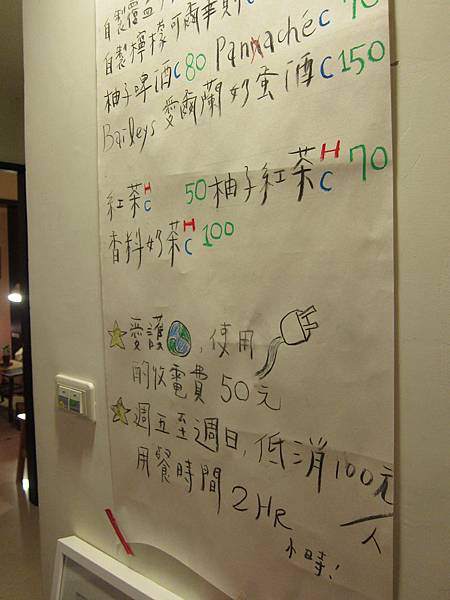 自製覆盆
自製檸檬可爾華則 C 70
柚子啤酒 C 80 Panaché C
Baileys 愛爾蘭奶蛋酒 C 150
紅茶 H C 50 柚子紅茶 H C 70
香料奶茶 H C 100
愛護 , 使用
酌收電費 50元
週五至週日, 低消100元/人
用餐時間 2HR
小時!